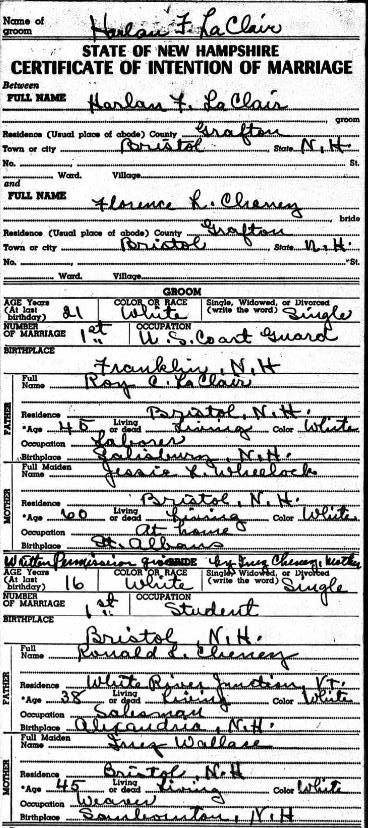 Name of groom Harlan F. LaClair
STATE OF NEW HAMPSHIRE
CERTIFICATE OF INTENTION OF MARRIAGE
Between
FULL NAME Harlan F. LaClair
groom
Residence (Usual place of abode) County Grafton
Town or city Bristol State N.H.
No. St.
Ward. Village
and
FULL NAME Florence L. Cheney
bride
Residence (Usual place of abode) County Grafton
Town or city Bristol State N.H.
No. St.
Ward. Village
GROOM
AGE Years (At last birthday) 21 COLOR OR RACE White Single, Widowed, or Divorced (write the word) Single
NUMBER OF MARRIAGE 1st OCCUPATION U.S. Coast Guard
BIRTHPLACE
Franklin, N.H
FATHER
Full Name Roy C. LaClair
Residence Bristol, N.H.
*Age 45 Living or dead Living Color White
Occupation Laborer
Birthplace Salisbury, N.H.
MOTHER
Full Maiden Name Jessie L. Wheelock
Residence Bristol, N.H.
*Age 60 Living or dead Living Color White
Occupation At home
Birthplace St. Albans
Written Permission BRIDE by Inez Cheney, Mother
AGE Years (At last birthday) 16 COLOR OR RACE White Single, Widowed, or Divorced (write the word) Single
NUMBER OF MARRIAGE 1st OCCUPATION Student
BIRTHPLACE
Bristol, N.H.
FATHER
Full Name Ronald L. Cheney
Residence White River Junction, Vt.
*Age 38 Living or dead Living Color White
Occupation Salesman
Birthplace Alexandria, N.H.
MOTHER
Full Maiden Name Inez Wallace
Residence Bristol, N.H
*Age 45 Living or dead Living Color White
Occupation Weaver
Birthplace Sanbornton, N.H